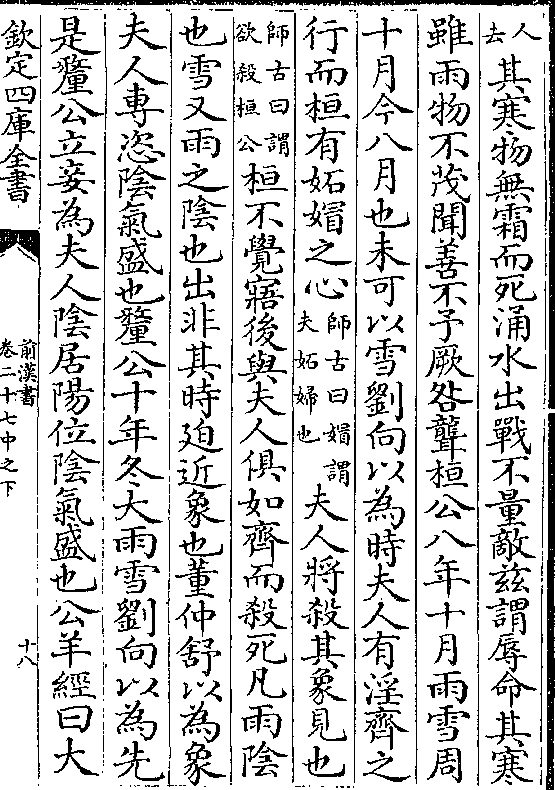 人
去
其寒物無霜而死涌水出戰不量敵兹謂辱命其寒
雖雨物不茂聞善不予厥咎聾桓公八年十月雨雪周
十月今八月也未可以雪劉向以為時夫人有淫齊之
行而桓有妬媢之心
師古曰媢謂
夫妬婦也
夫人將殺其象見也
師古曰謂
欲殺桓公
桓不覺寤後與夫人俱如齊而殺死凡雨陰
也雪又雨之陰也出非其時廹近象也董仲舒以為象
夫人專恣陰氣盛也釐公十年冬大雨雪劉向以為先
是釐公立妾為夫人陰居陽位陰氣盛也公羊經曰大
欽定四庫全書
前漢書
卷二十七中之下
十八